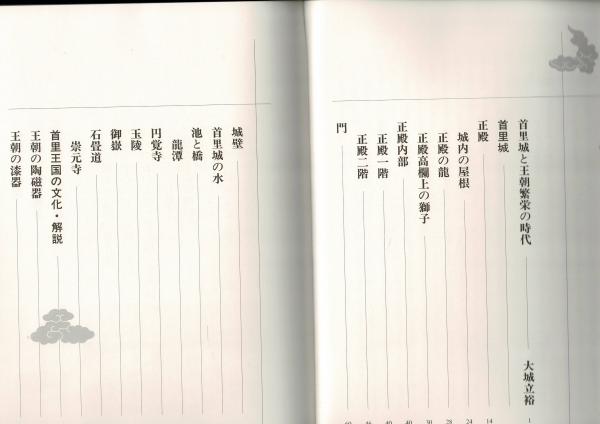 首里城と王朝繁栄の時代 大城立裕 1
首里城
正殿 14
城内の屋根 24
正殿の龍 28
正殿高欄上の獅子 30
正殿内部 40
正殿一階 40
正殿二階
門
城壁
首里城の水
池と橋
龍潭
円覚寺
玉陵
御嶽
石畳道
崇元寺
首里王国の文化・解説
王朝の陶磁器
王朝の漆器